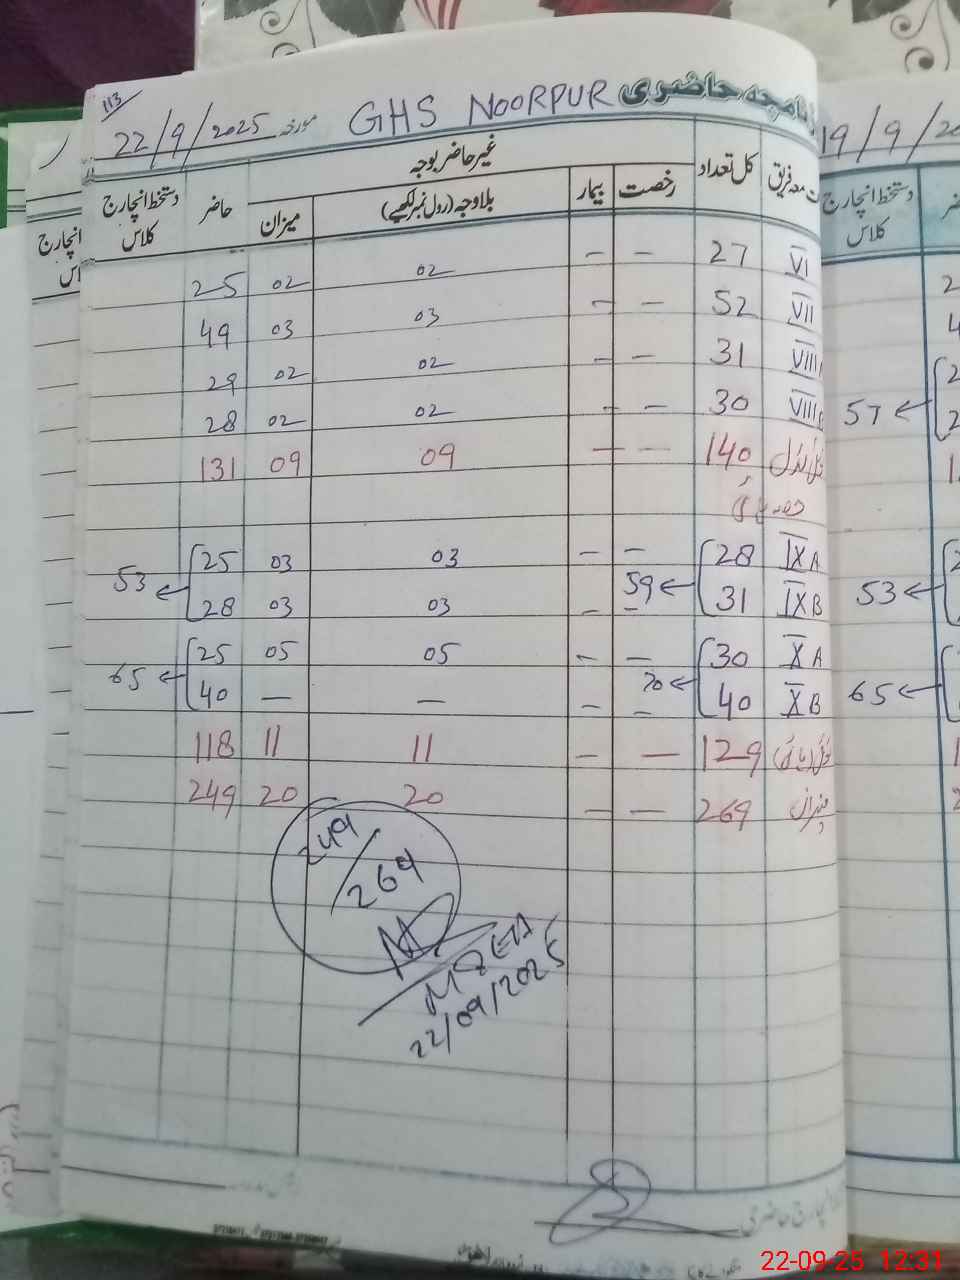 113
22/9/2025 مورخہ GHS NOORPUR روزنامچہ حاضری
کل تعداد غیر حاضر بوجہ حاضر دستخط انچارج کلاس
رخصت بیمار بلاوجہ (رول نمبر لکھیے) میزان
VI 27 — — 02 02 25
VII 52 — — 03 03 49
VIII 31 — — 02 02 29
VIII 30 — — 02 02 28
140 — — 09 09 131
IXA 28 — — 03 03 25
59 ← 53 ←
IXB 31 — — 03 03 28
XA 30 — — 05 05 25
70 ← 65 ←
XB 40 — — — — 40
129 — — 11 11 118
میزان 269 — — 20 20 249
249/269
MREIA
22/09/2025
انچارج حاضری
19/9/20
دستخط انچارج کلاس
57 ←
53 ←
65 ←
انچارج
22-09-25 12:31